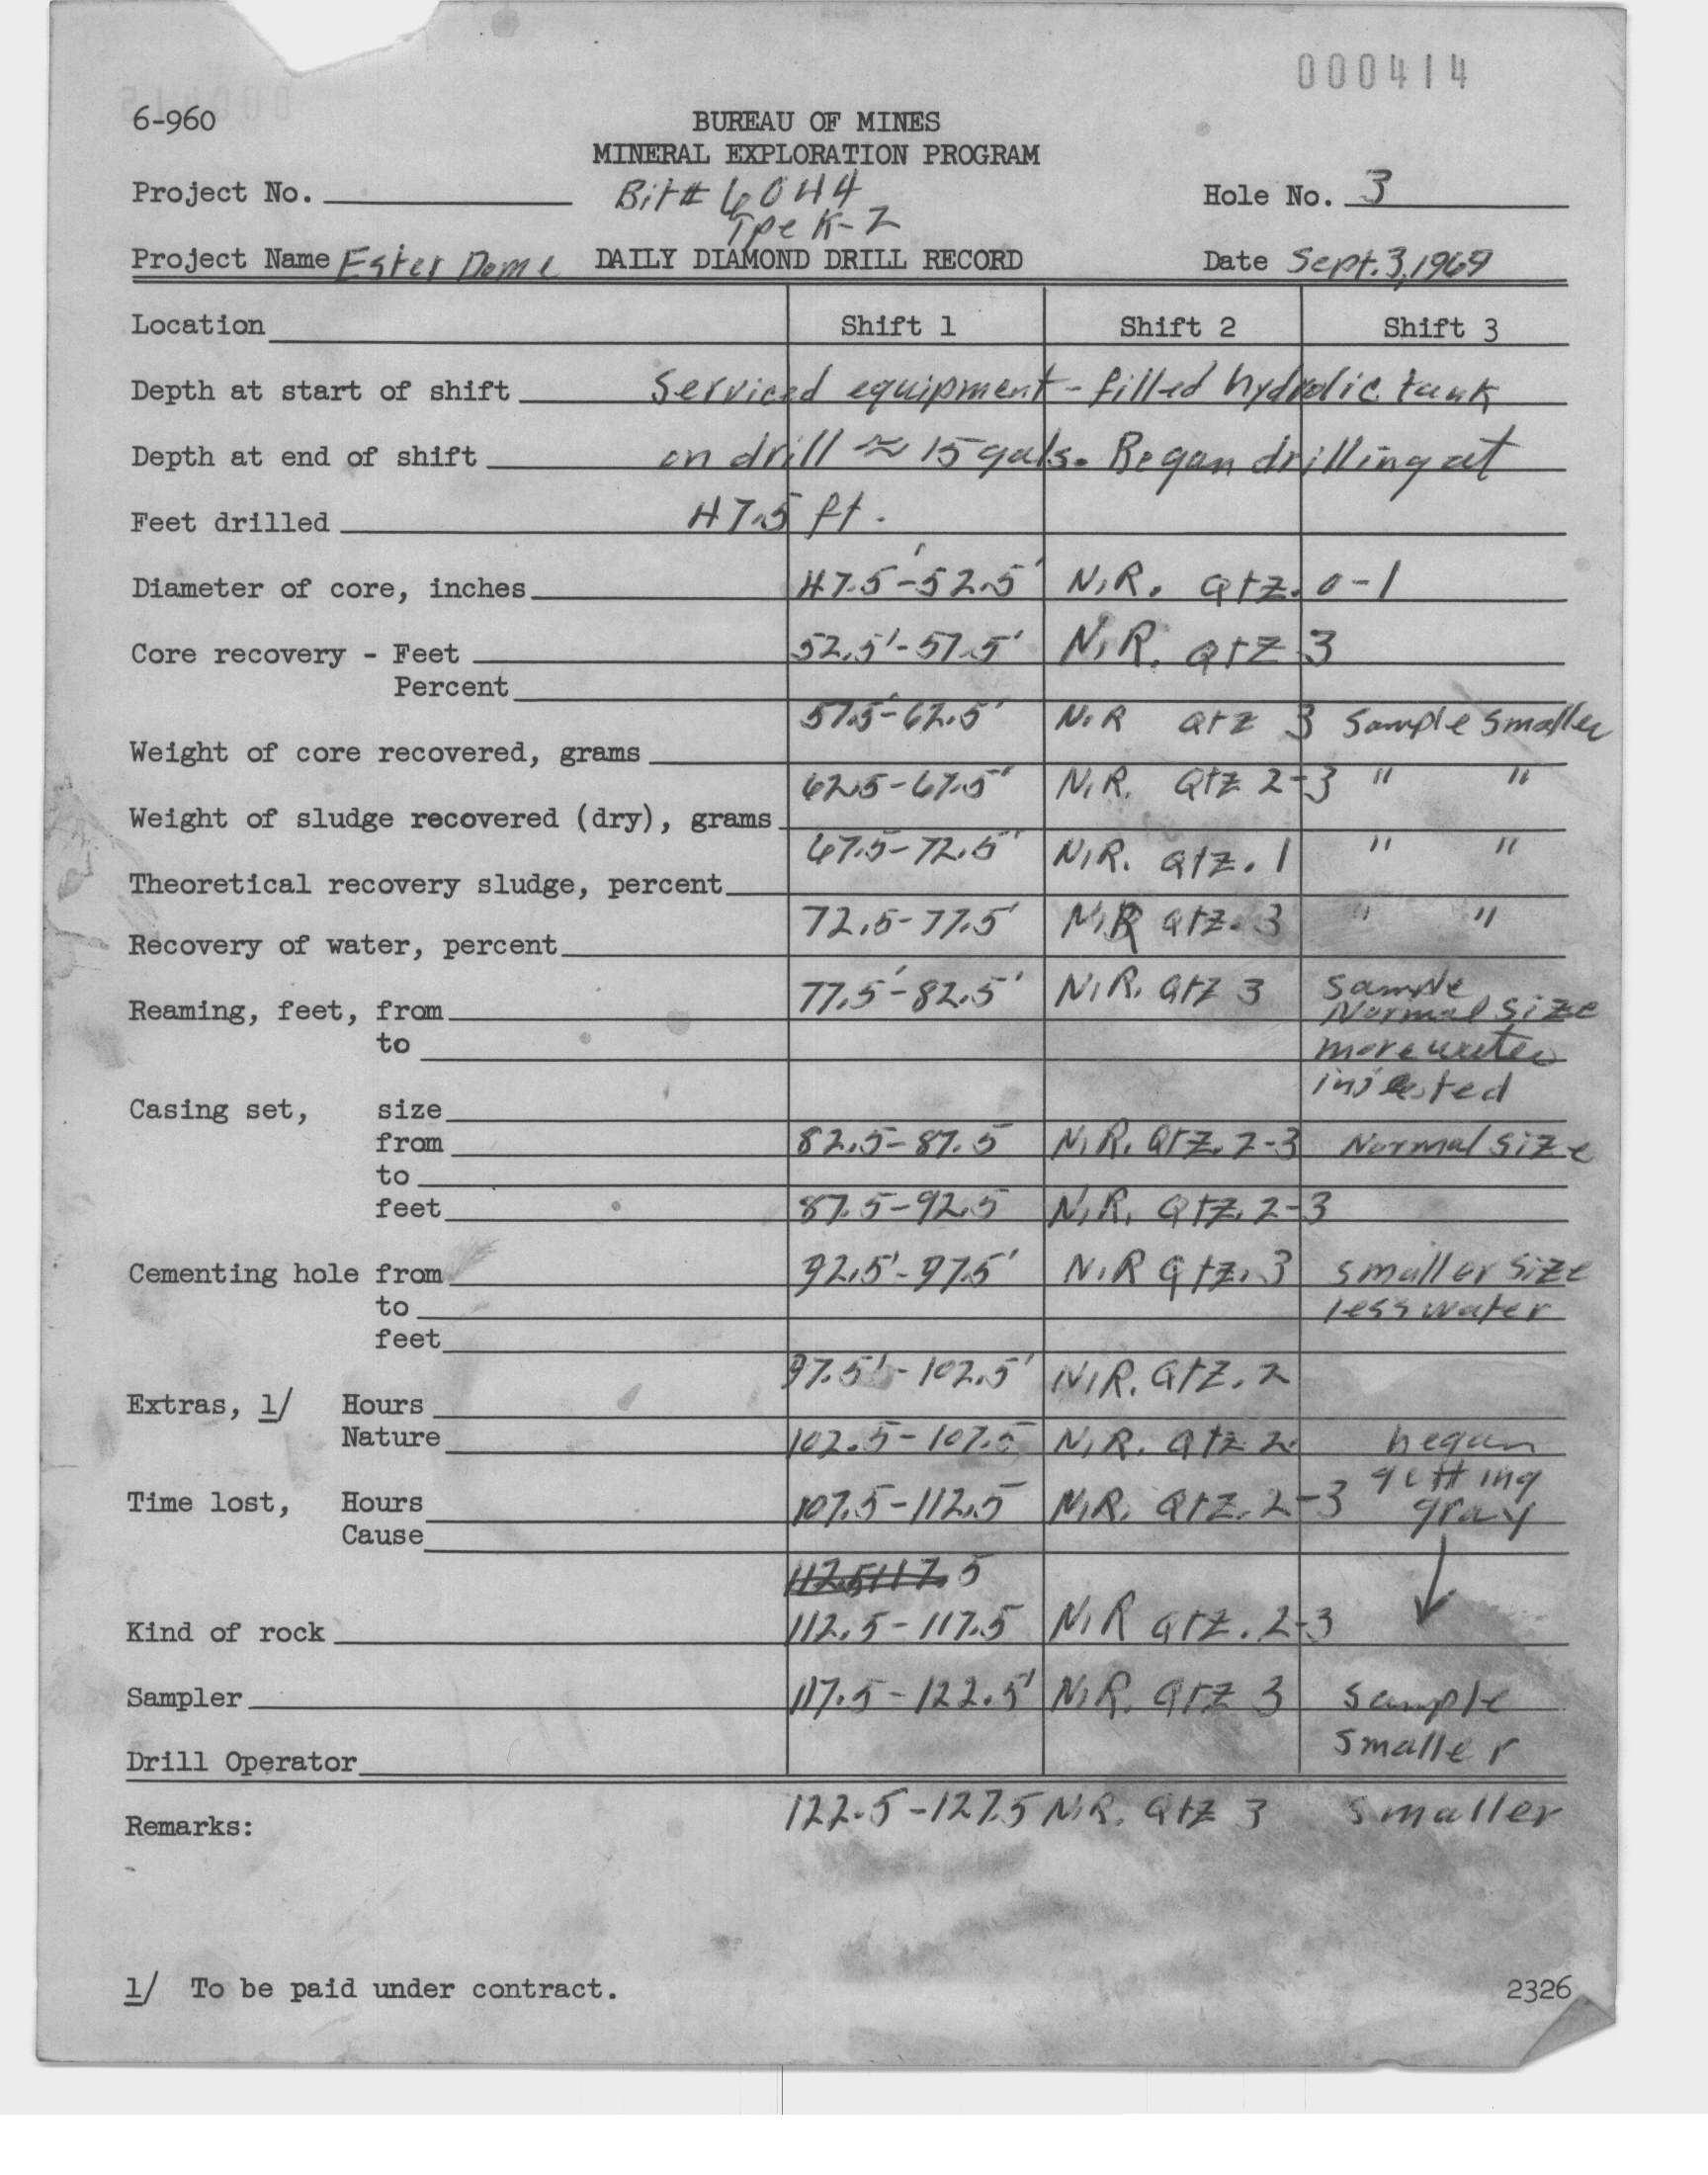 000414
6-960
BUREAU OF MINES
MINERAL EXPLORATION PROGRAM
Project No. Bit# 6044 Hole No. 3
Tpe K-2
Project Name Ester Dome DAILY DIAMOND DRILL RECORD Date Sept. 3, 1969
Location Shift 1 Shift 2 Shift 3
Depth at start of shift Serviced equipment - filled hydrolic tank
Depth at end of shift on drill ≈ 15 gals. Began drilling at
Feet drilled 47.5 ft.
Diameter of core, inches 47.5'-52.5' N.R. Qtz. 0-1
Core recovery - Feet 52.5'-57.5' N.R. Qtz 3
Percent
57.5'-62.5' N.R Qtz 3 Sample Smaller
Weight of core recovered, grams
62.5-67.5' N.R. Qtz 2-3 " "
Weight of sludge recovered (dry), grams
67.5-72.5' N.R. Qtz. 1 " "
Theoretical recovery sludge, percent
72.5-77.5' N.R Qtz. 3 " "
Recovery of water, percent
77.5'-82.5' N.R. Qtz 3 Sample
Reaming, feet, from Normal Size
to more water
injested
Casing set, size
from 82.5-87.5 N.R. Qtz. 2-3 Normal Size
to
feet 87.5-92.5 N.R. Qtz. 2-3
Cementing hole from 92.5'-97.5' N.R Qtz. 3 smaller size
to less water
feet
97.5'-102.5' N.R. Qtz. 2
Extras, 1/ Hours
Nature 102.5-107.5 N.R. Qtz 2. began
getting
Time lost, Hours 107.5-112.5 N.R. Qtz. 2-3 gray
Cause
112.5 117.5
Kind of rock 112.5-117.5 N.R Qtz. 2-3
Sampler 117.5-122.5' N.R. Qtz 3 Sample
Smaller
Drill Operator
122.5-127.5 N.R. Qtz 3 Smaller
Remarks:
1/ To be paid under contract.
2326